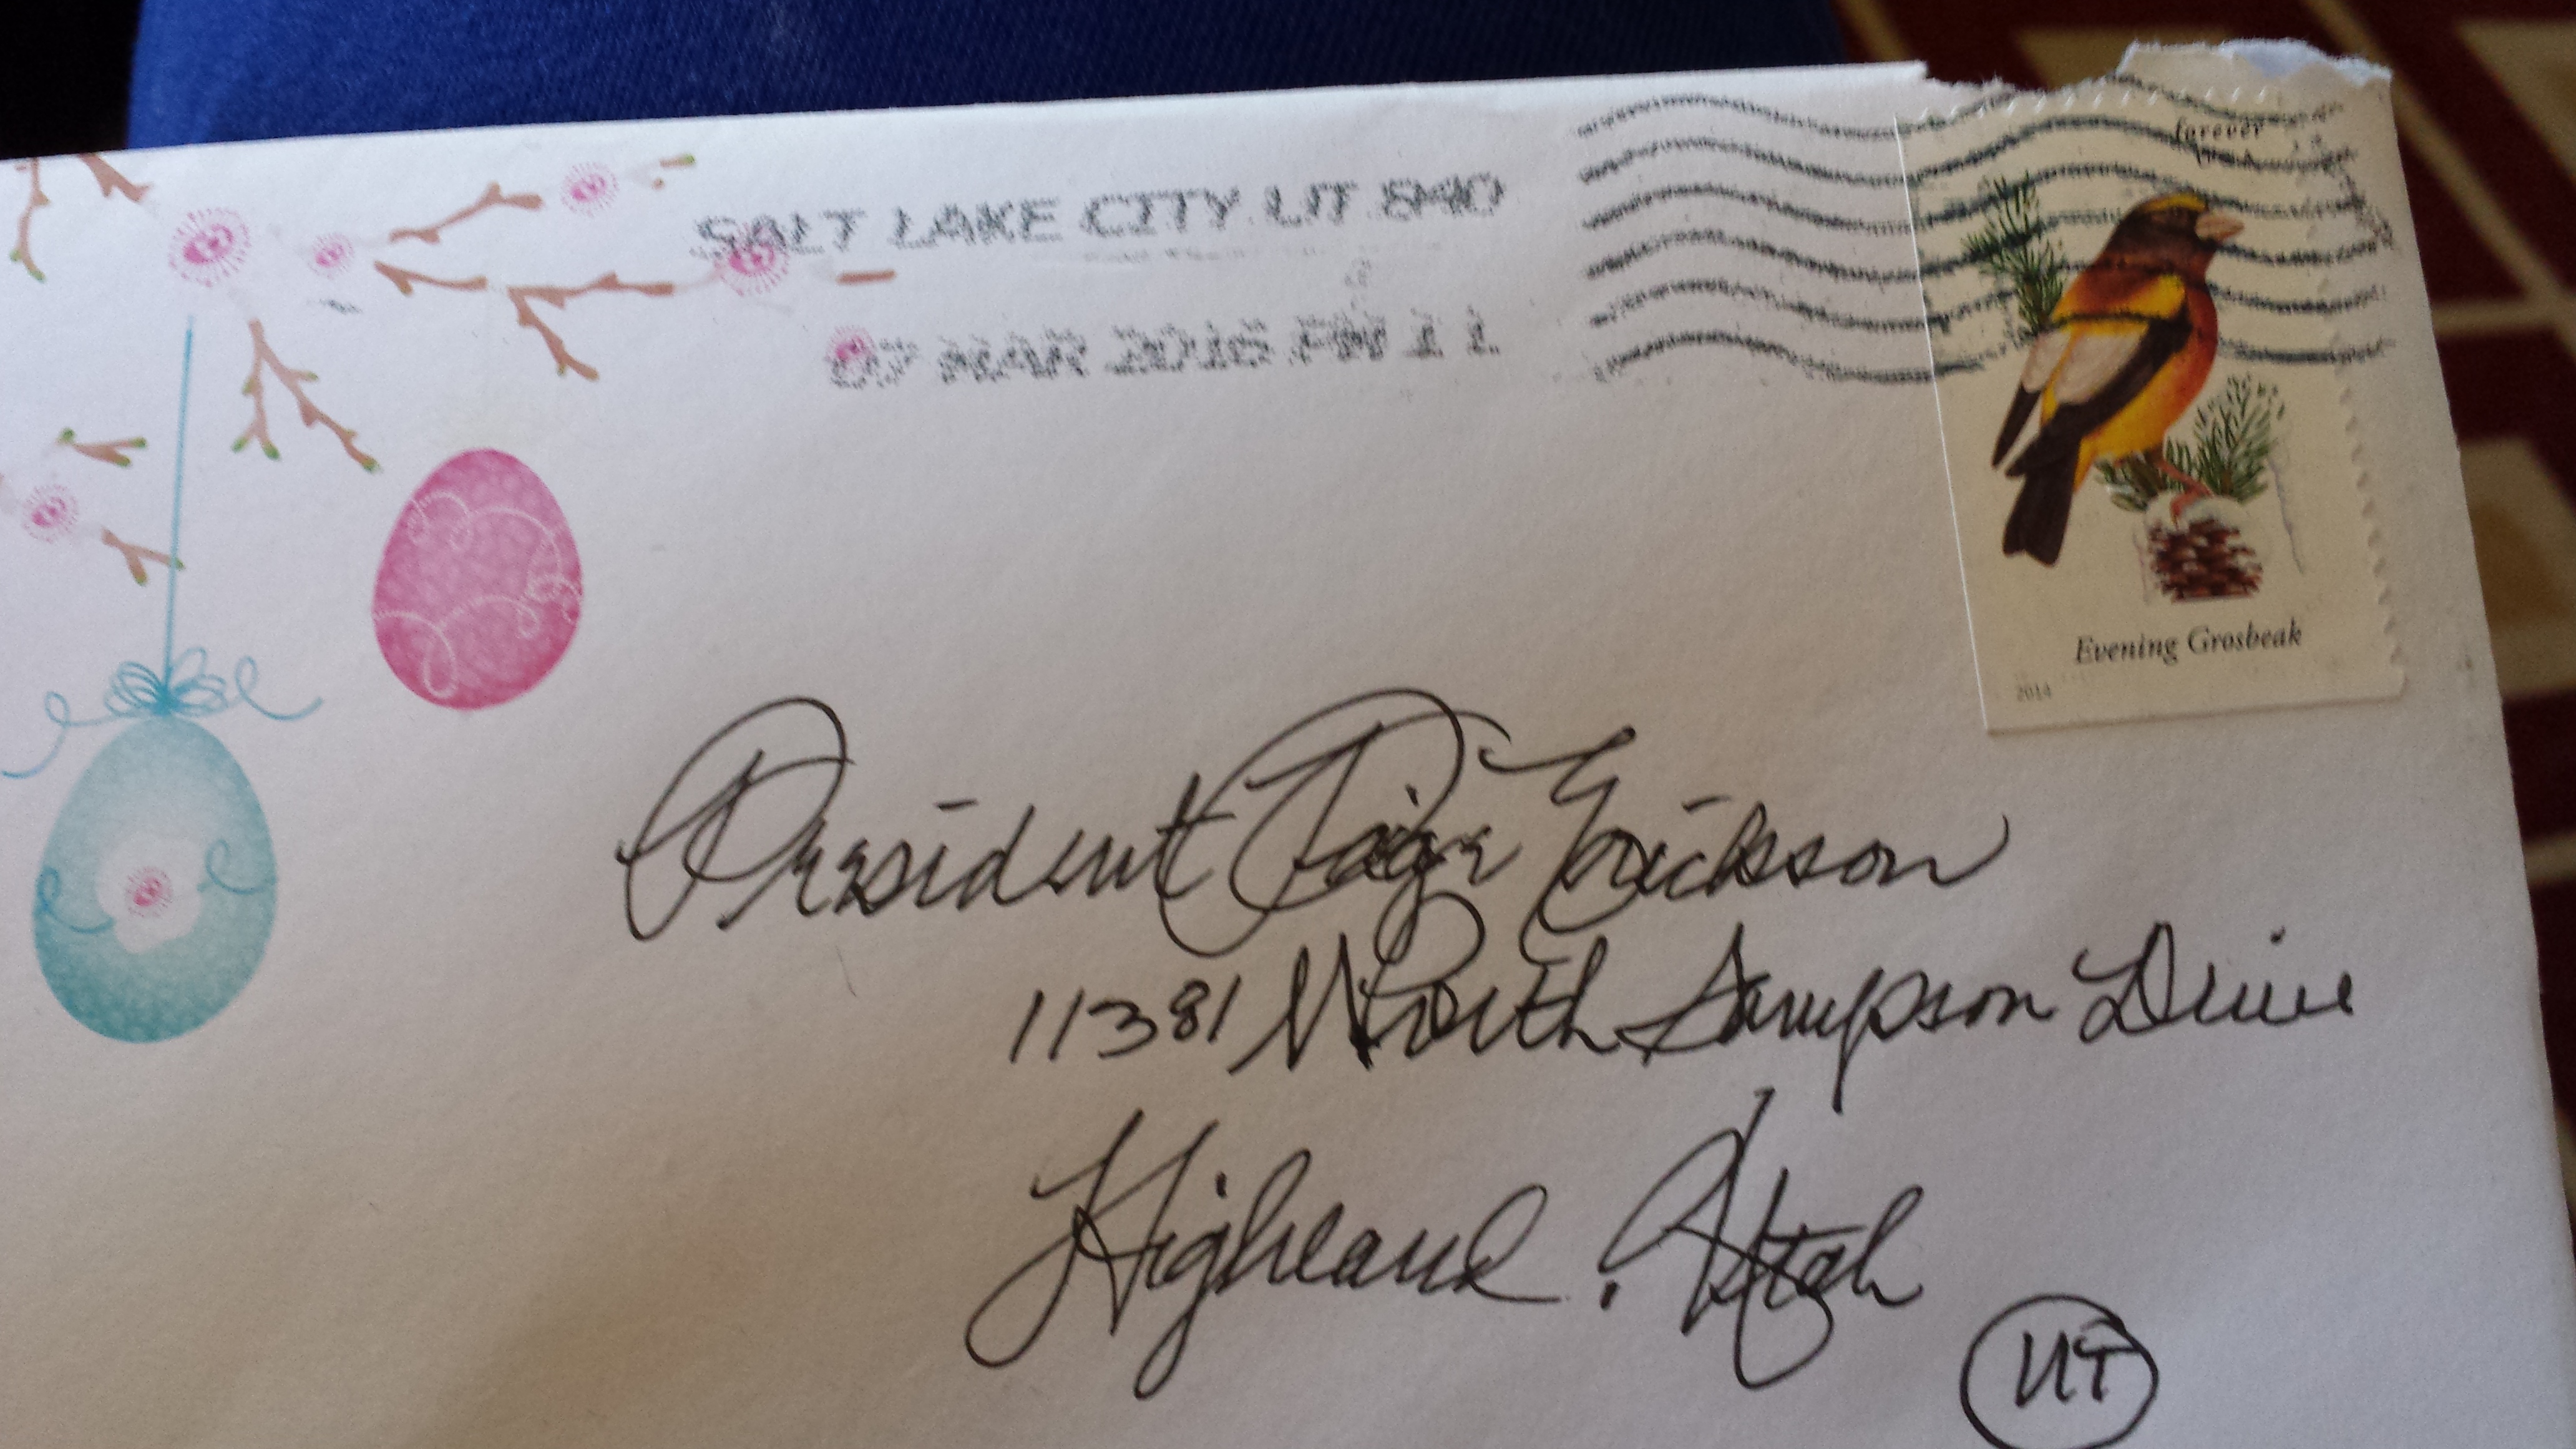 SALT LAKE CITY UT 840
07 MAR 2016 PM 11
forever
Evening Grosbeak
2014
President Paige Erickson
11381 North Sampson Drive
Highland, Utah
UT